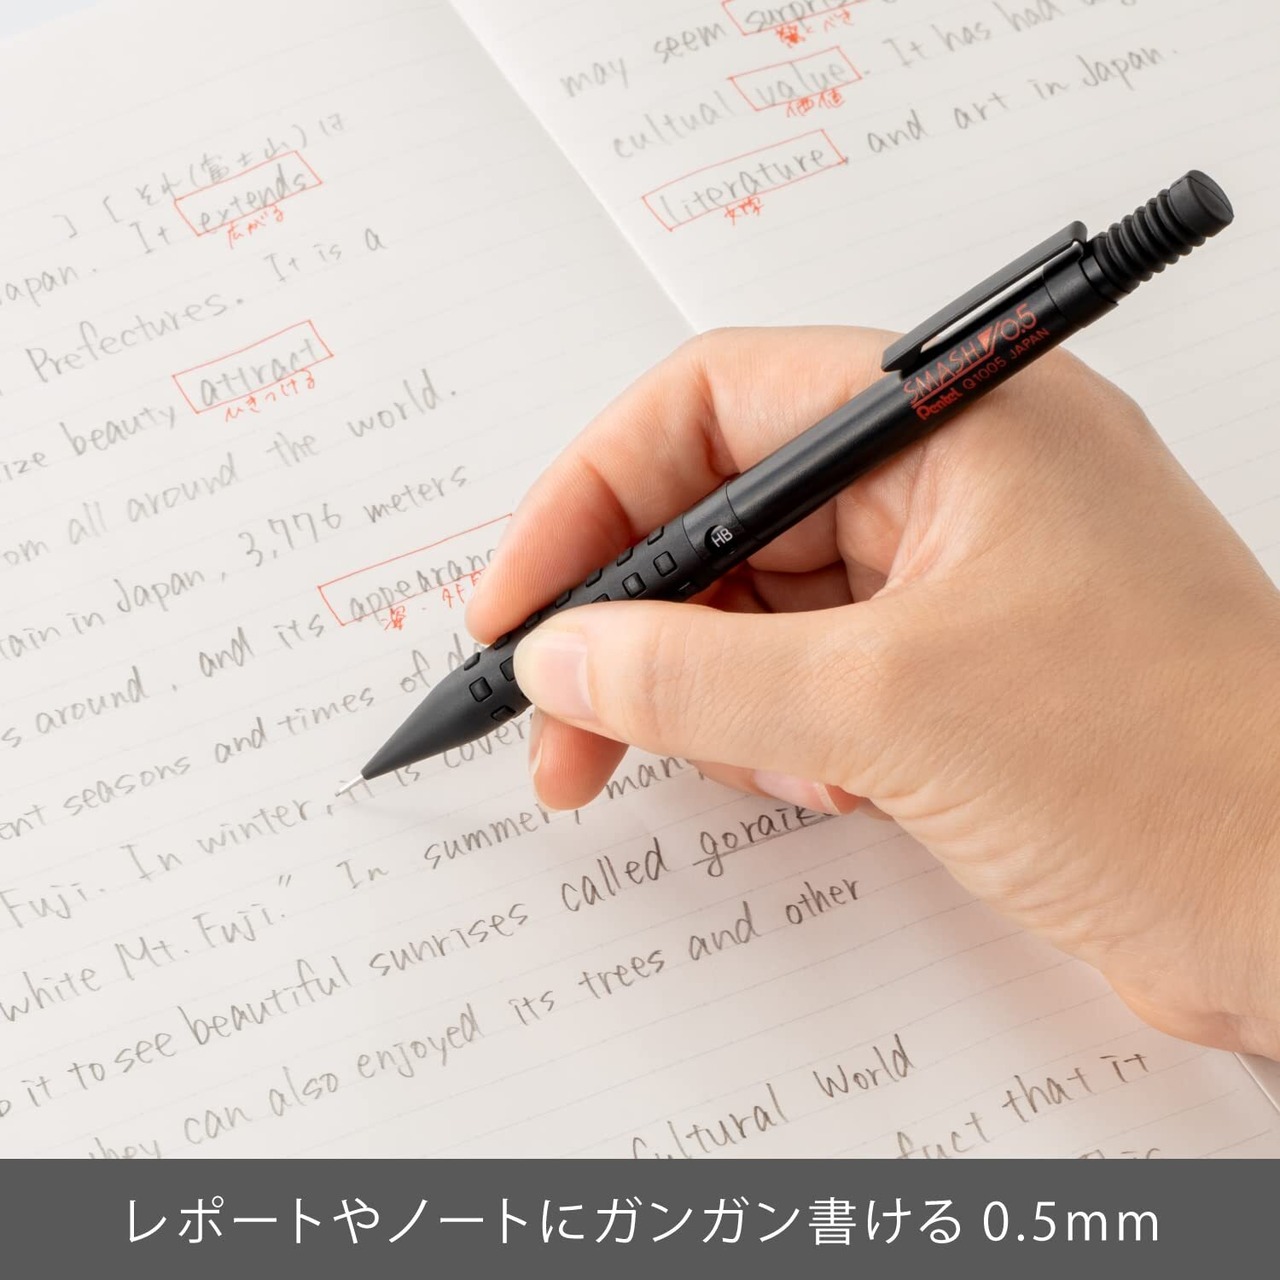 ] [ それ(富士山)は
It extends
広がる
Japan.
Prefectures. It is a
beauty attract
ひきつける
om all around the world.
tain in Japan, 3,776 meters
s around, and its appearanc
姿・外見
ent seasons and times of d
Fuji. In winter, it is cover
white Mt. Fuji." In summer, man
o it to see beautiful sunrises called goraik
hey can also enjoyed its trees and other
Cultural World
fact that it
may seem surpris
cultual value. It has had
価値
literature, and art in Japan.
文学
SMASH 0.5
Pentel Q1005 JAPAN
HB
レポートやノートにガンガン書ける 0.5mm